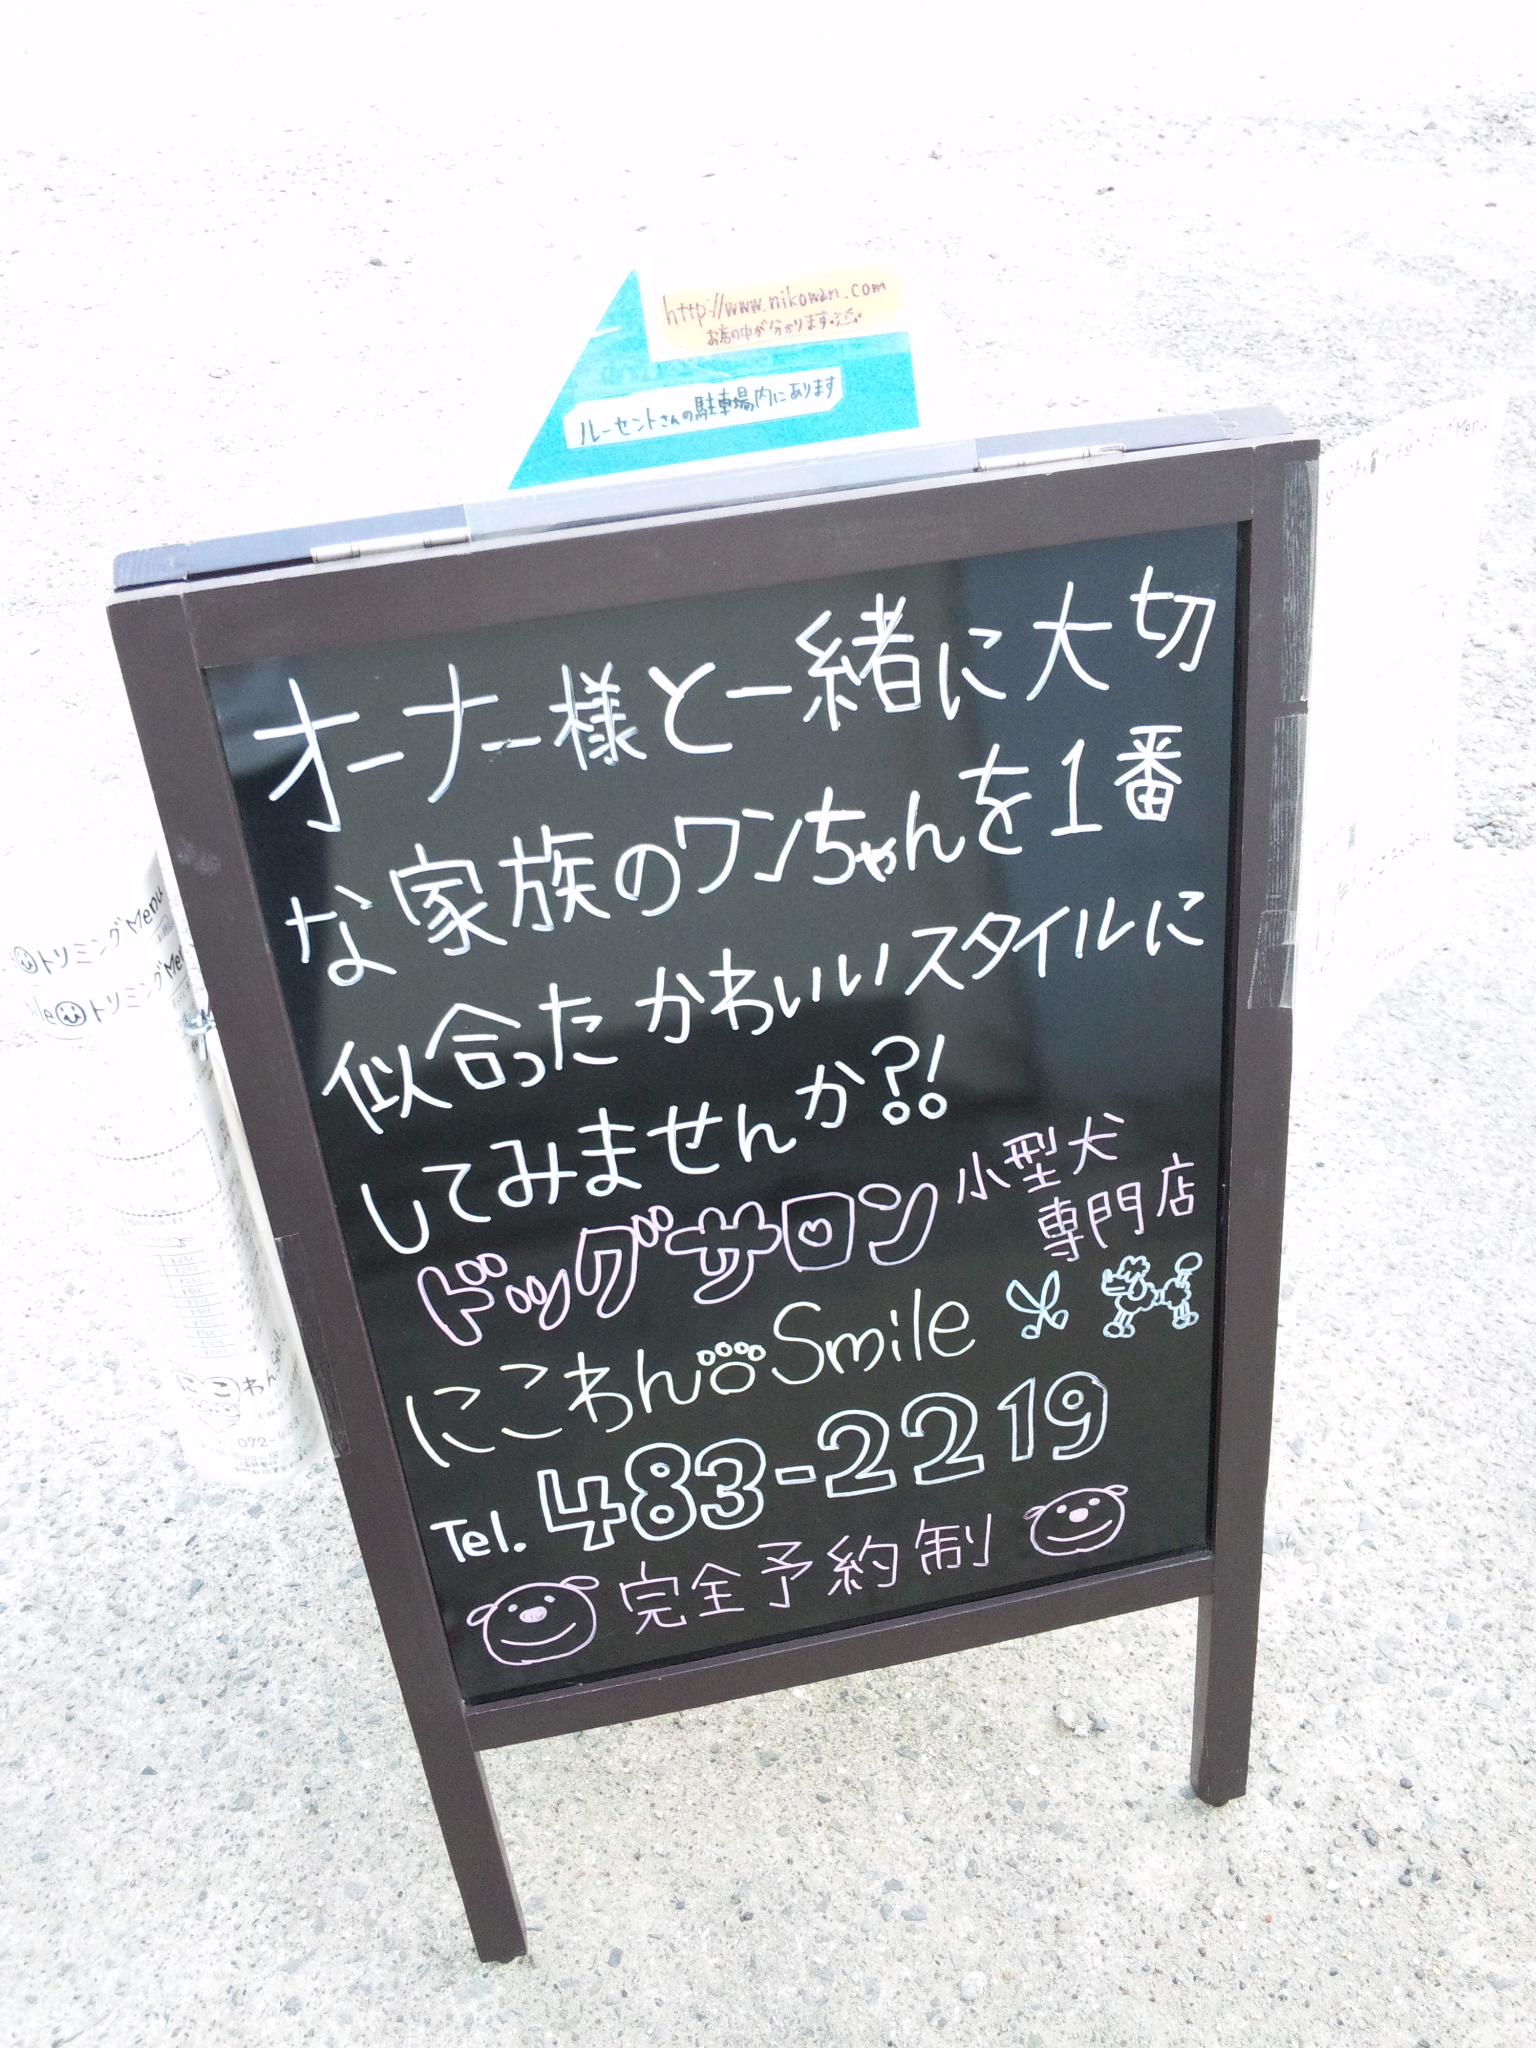 http://www.nikowan.com
お店の中が分かります
ルーセントさんの駐車場内にあります
オーナー様と一緒に大切
な家族のワンちゃんを1番
似合ったかわいいスタイルに
してみませんか?!
ドッグサロン 小型犬
専門店
にこわん Smile
Tel. 483-2219
完全予約制
トリミングMenu
トリミングMenu
にこわんSmile